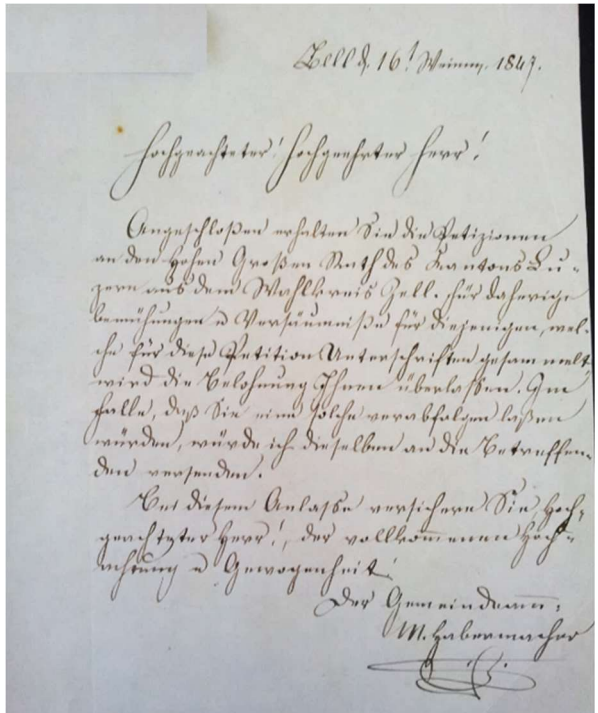 Zell d. 16t Weinm. 1847.
Hochgeachteter! Hochgeehrter Herr!
Angeschloßen erhalten Sie die Petizionen
an den Hohen Großen Rath des Kantons Lu-
zern aus dem Wahlkreis Zell. Für daherige
bemühungen u Versäumniße für diejenigen, wel-
che für diese Petition Unterschriften gesammelt,
wird die Belohnung Ihnen überlassen. Im
Falle, daß Sie eine solche verabfolgen laßen
würden, würde ich dieselben an die Betreffen-
den versenden.
Bei diesem Anlaße versichere Sie Hoch-
geachteter Herr!, der vollkommenen Hoch-
achtung u Gewogenheit.
Der Gemeindeamm:
M. Habermacher